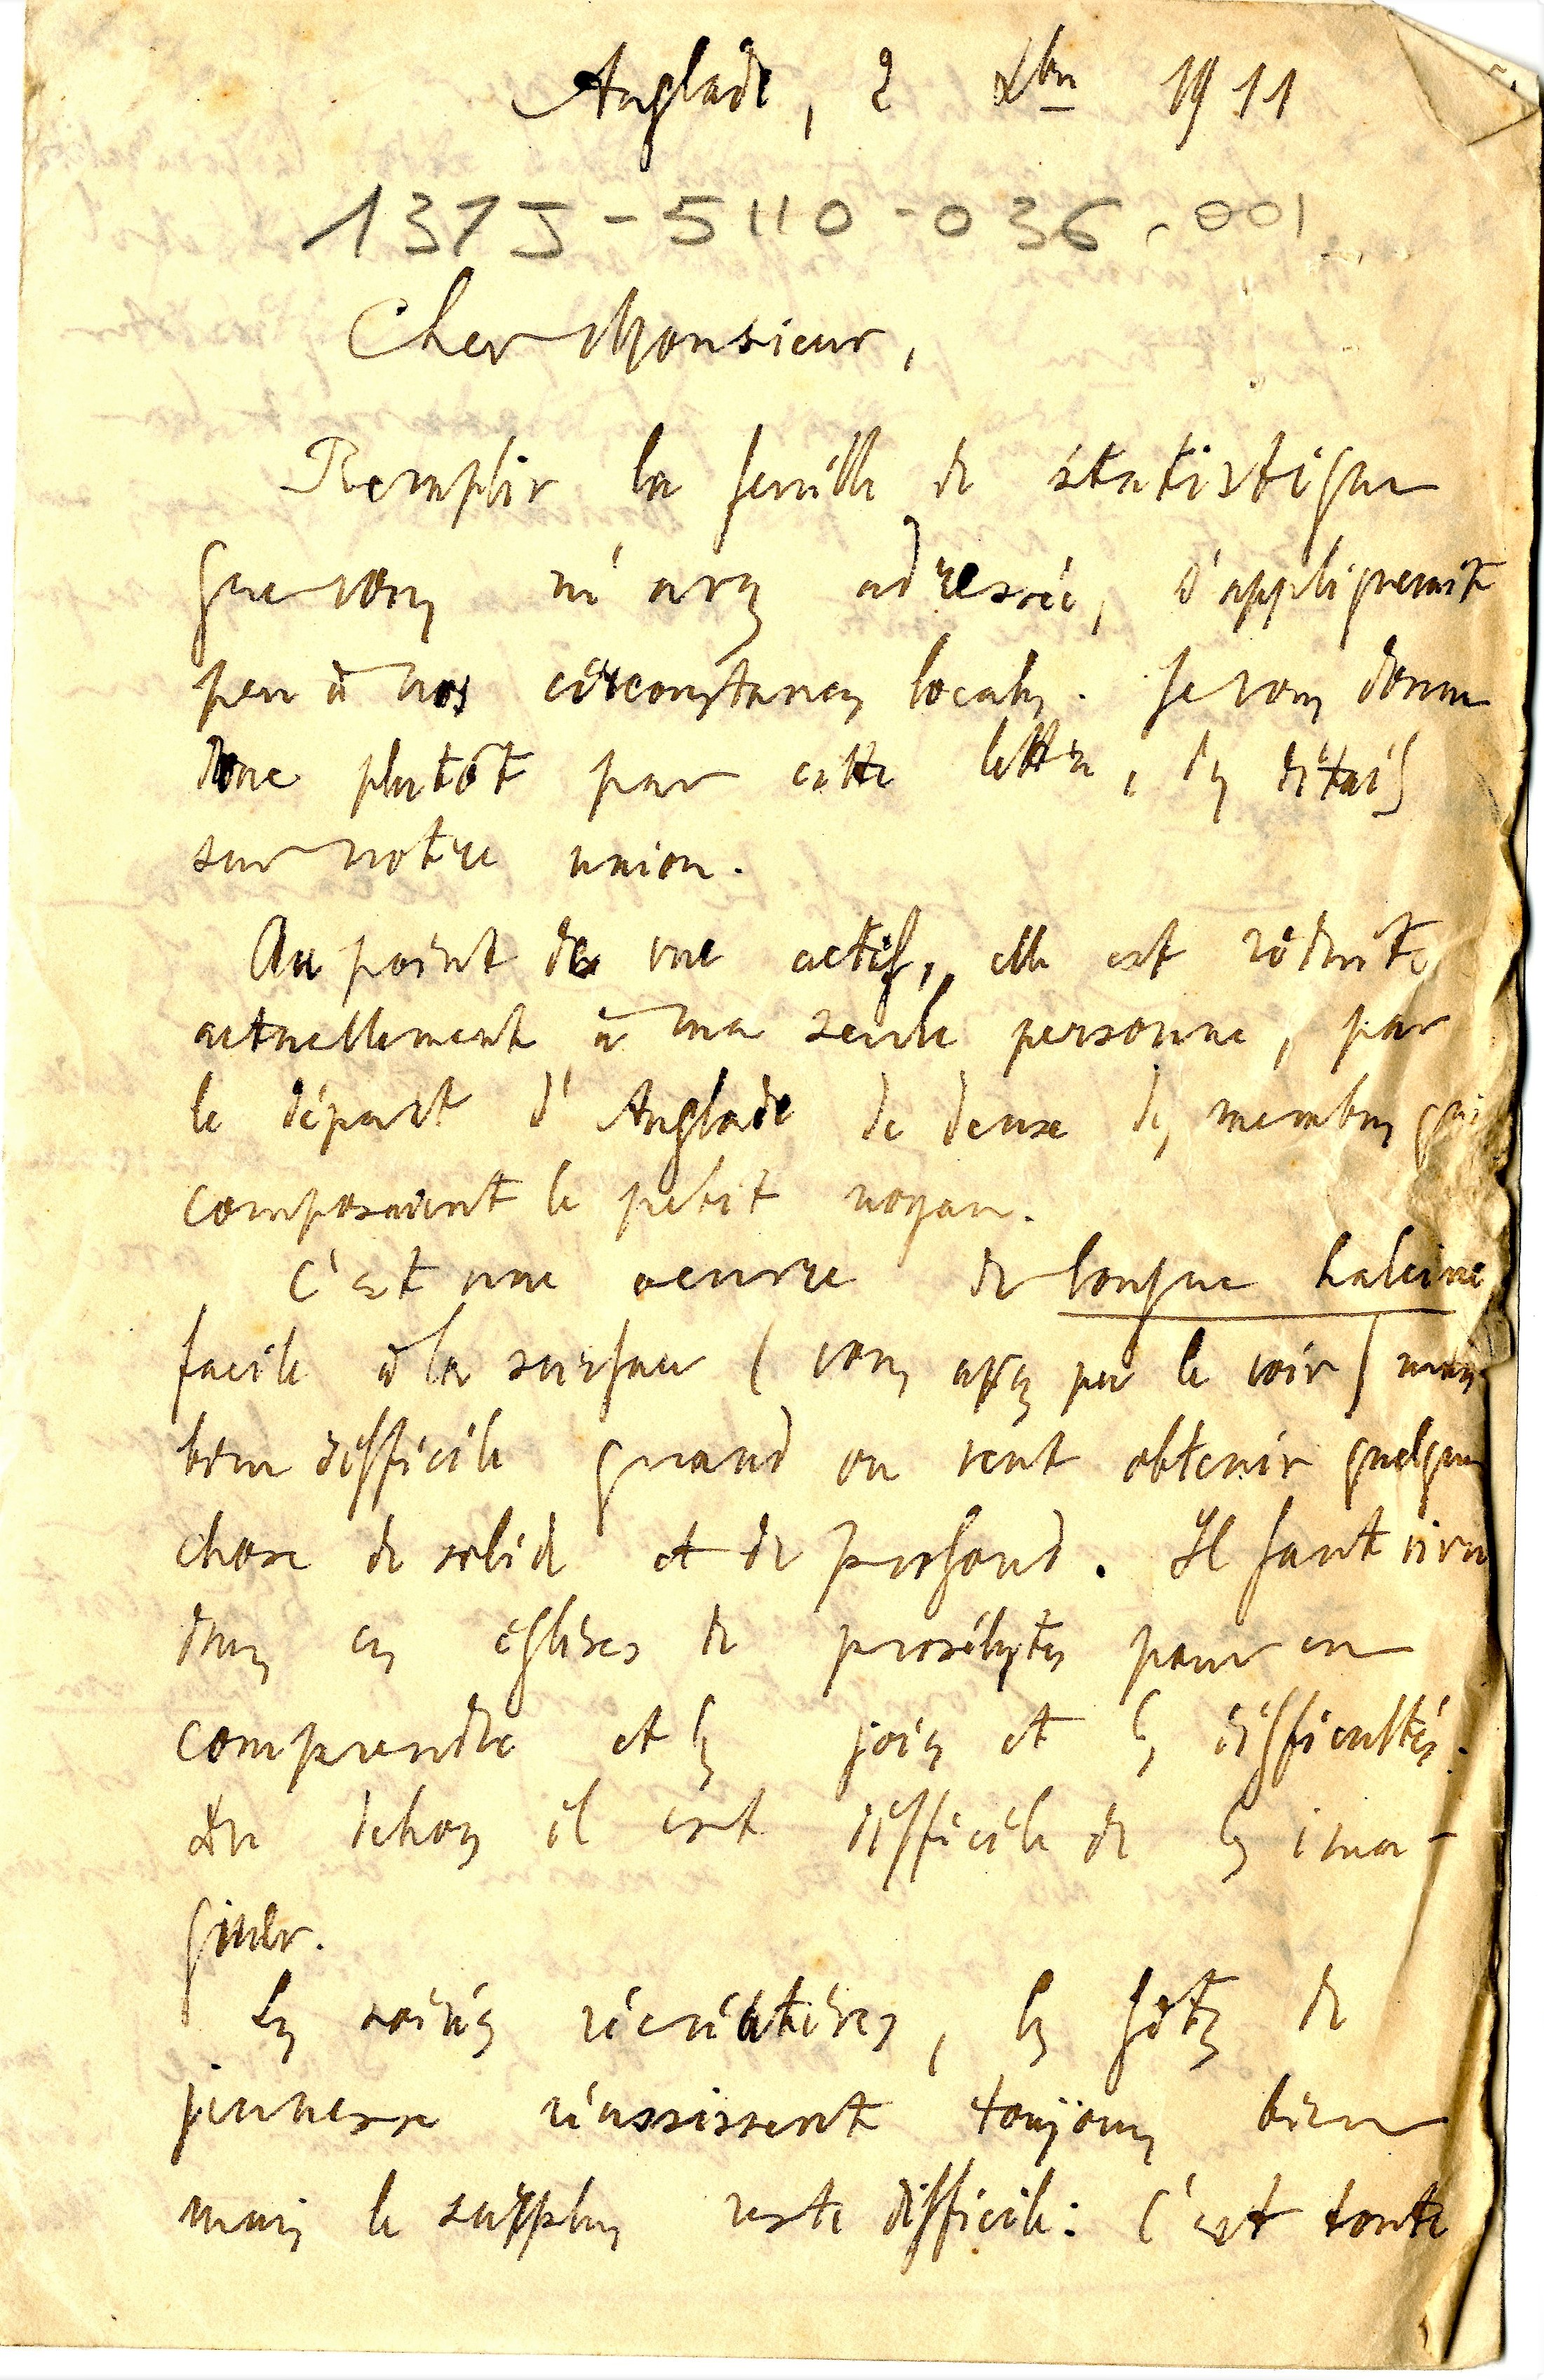 Anglade, 2 Xbre 1911
137J-5110-036-001
Cher Monsieur,
Remplir la feuille de statistique
que vous m'avez adressée, s'appliquerait
peu à nos circonstances locales. Je vous donne
donc plutôt par cette lettre, des détails
sur notre union.
Au point de vue actif, elle est réduite
actuellement à ma seule personne, par
le départ d'Anglade de deux des membres qui
composaient le petit noyau.
C'est une oeuvre de longue haleine
facile à la surface (vous avez pu le voir) mais
bien difficile quand on veut obtenir quelque
chose de solide et de profond. Il faut vivre
dans ces églises de prosélytes pour en
comprendre et les joies et les difficultés.
Du dehors il est difficile de les ima-
giner.
Les soirées récréatives, les fêtes de
jeunesse réussissent toujours bien
mais le surplus reste difficile: C'est toute